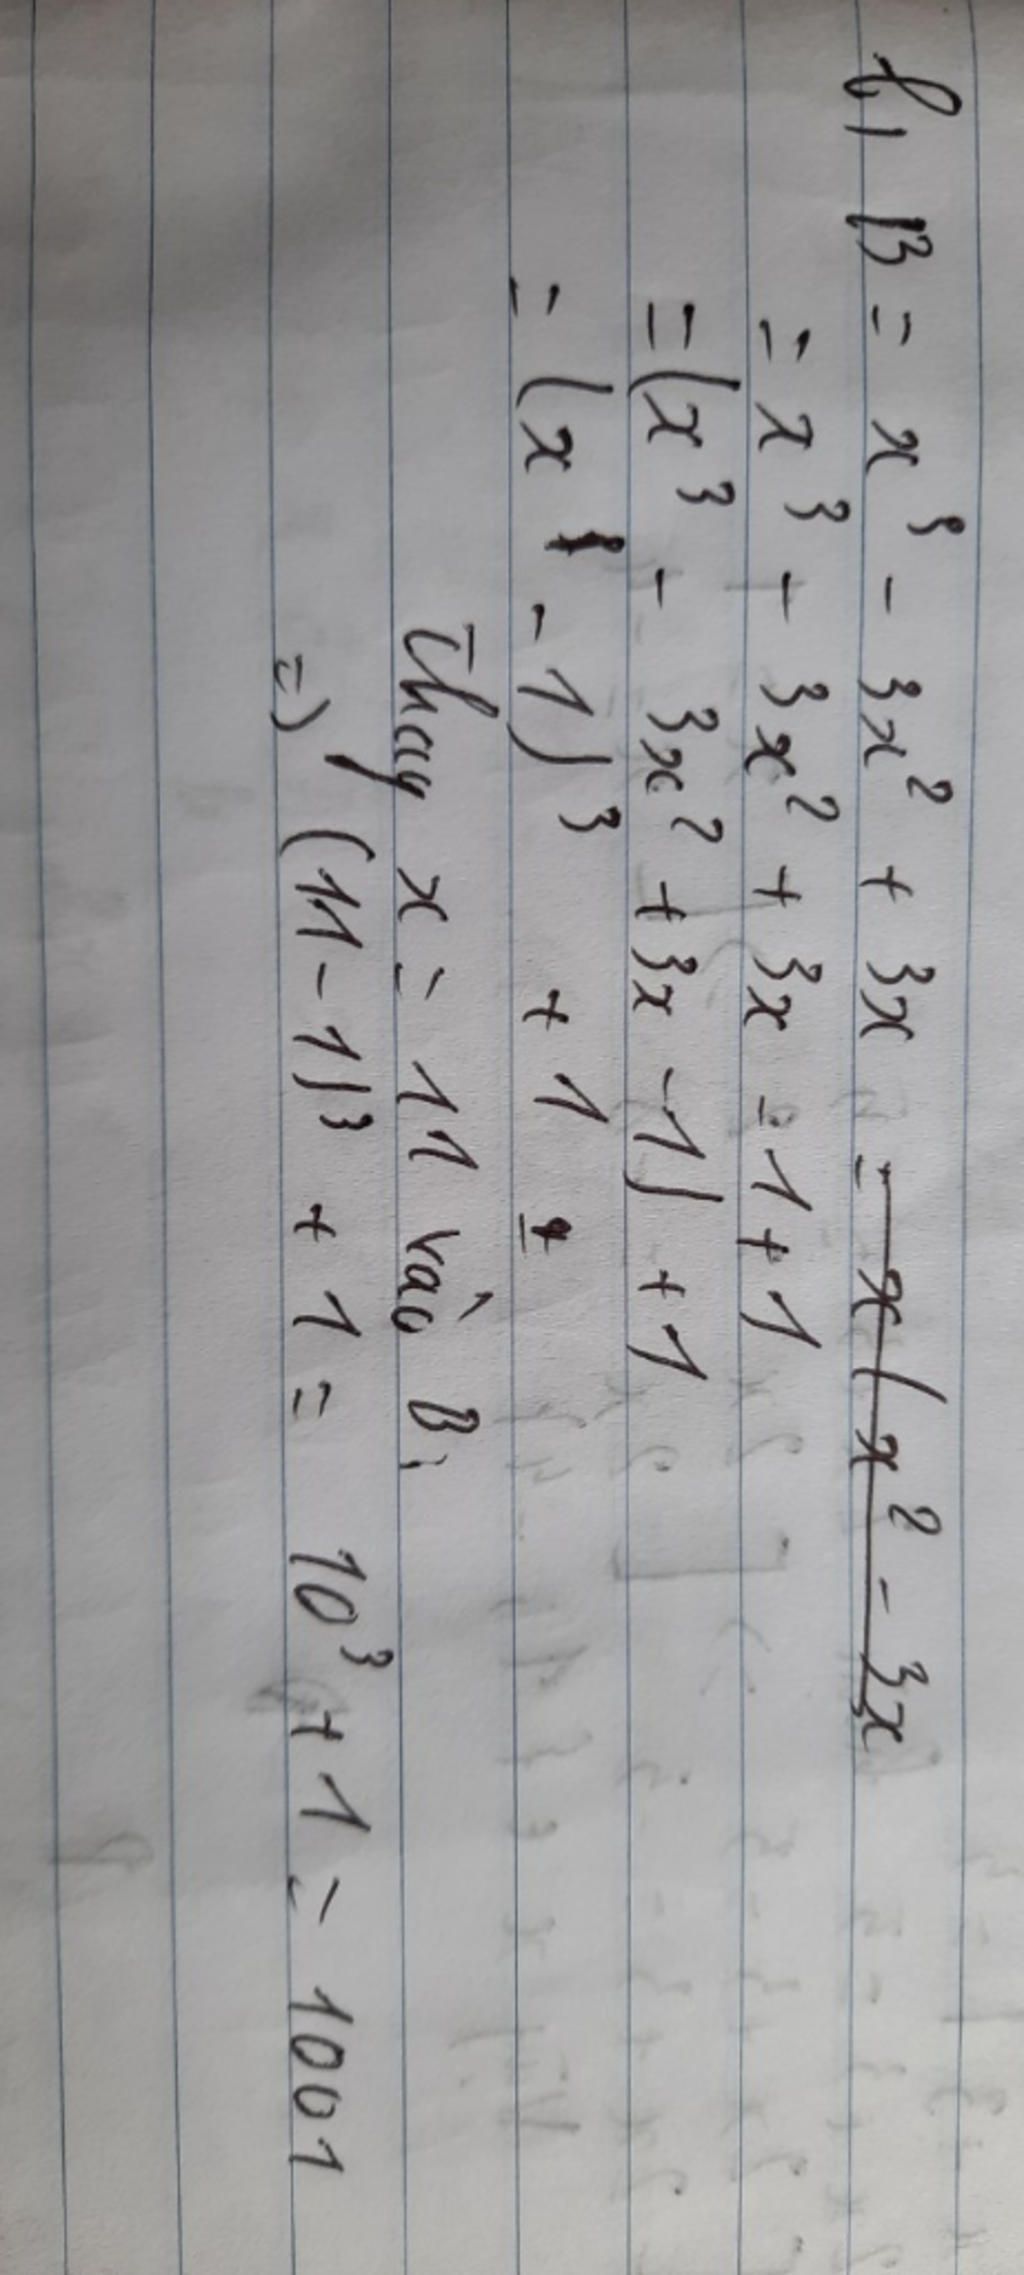 b, B = x³ - 3x² + 3x = x(x² - 3x
= x³ - 3x² + 3x - 1 + 1
= (x³ - 3x² + 3x - 1) + 1
= (x - 1)³ + 1
Thay x = 11 vào B:
=> (11 - 1)³ + 1 = 10³ + 1 = 1001